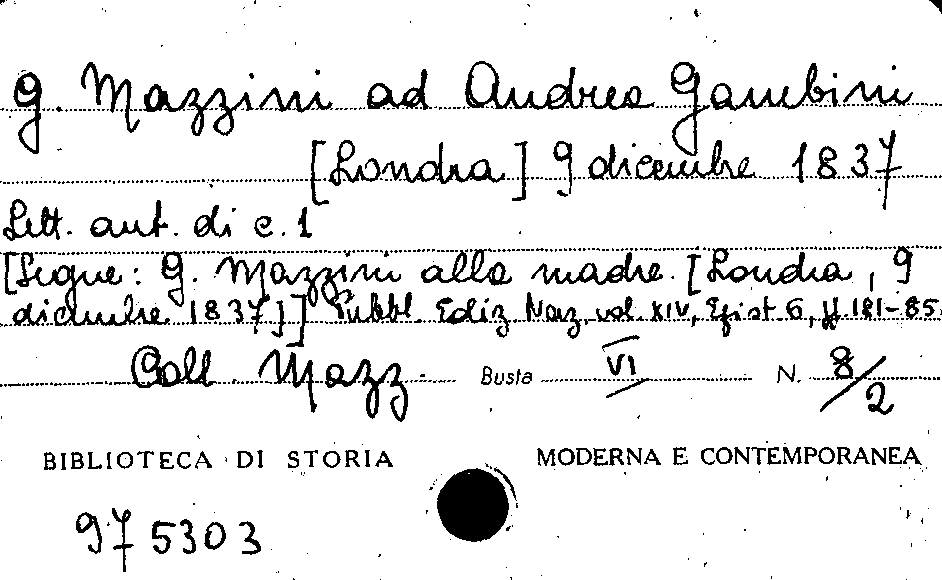 G. Mazzini ad Andrea Gambini
[Londra] 9 dicembre 1837
Lett. aut. di c. 1
[Segue: G. Mazzini alla madre. [Londra, 9
dicembre 1837]] Pubbl. Ediz. Naz. vol. XIV, Epist. 6, pp. 181-85.
Coll. Mazz. Busta VI N. 8/2
BIBLIOTECA DI STORIA MODERNA E CONTEMPORANEA
975303